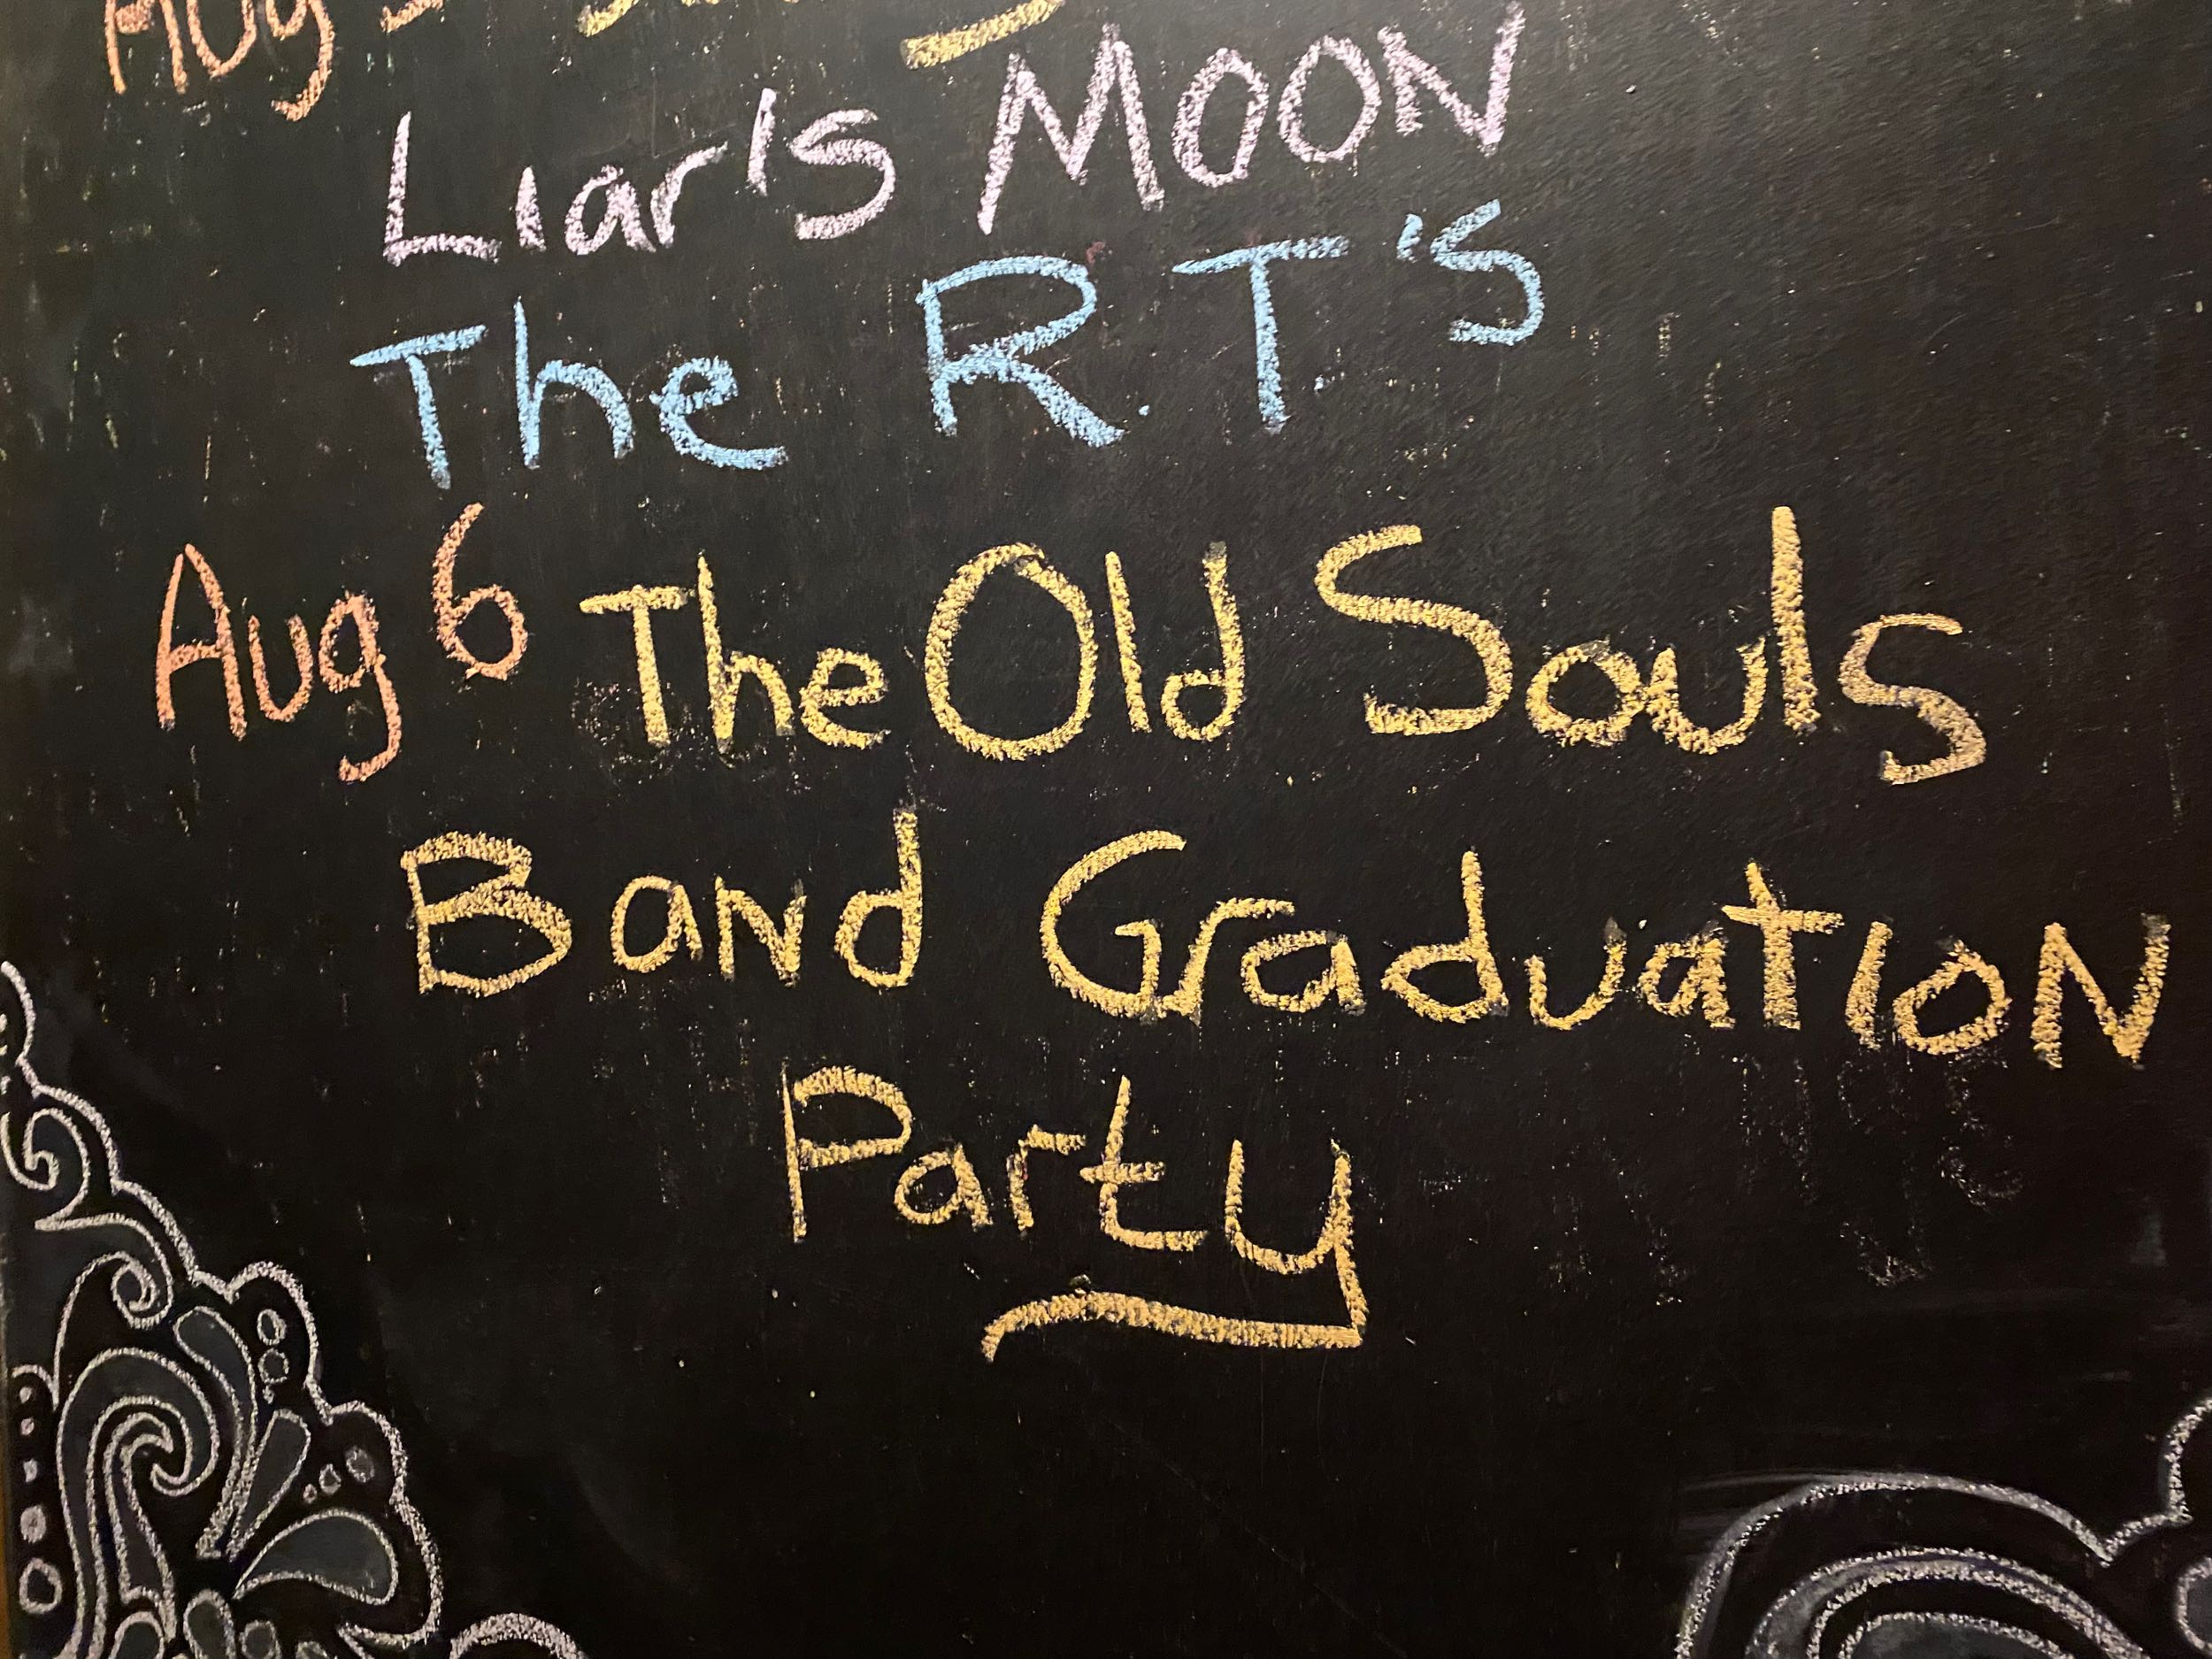 Aug
Liar's MOON
The R.T's
Aug 6 The Old Souls
Band Graduation
Party